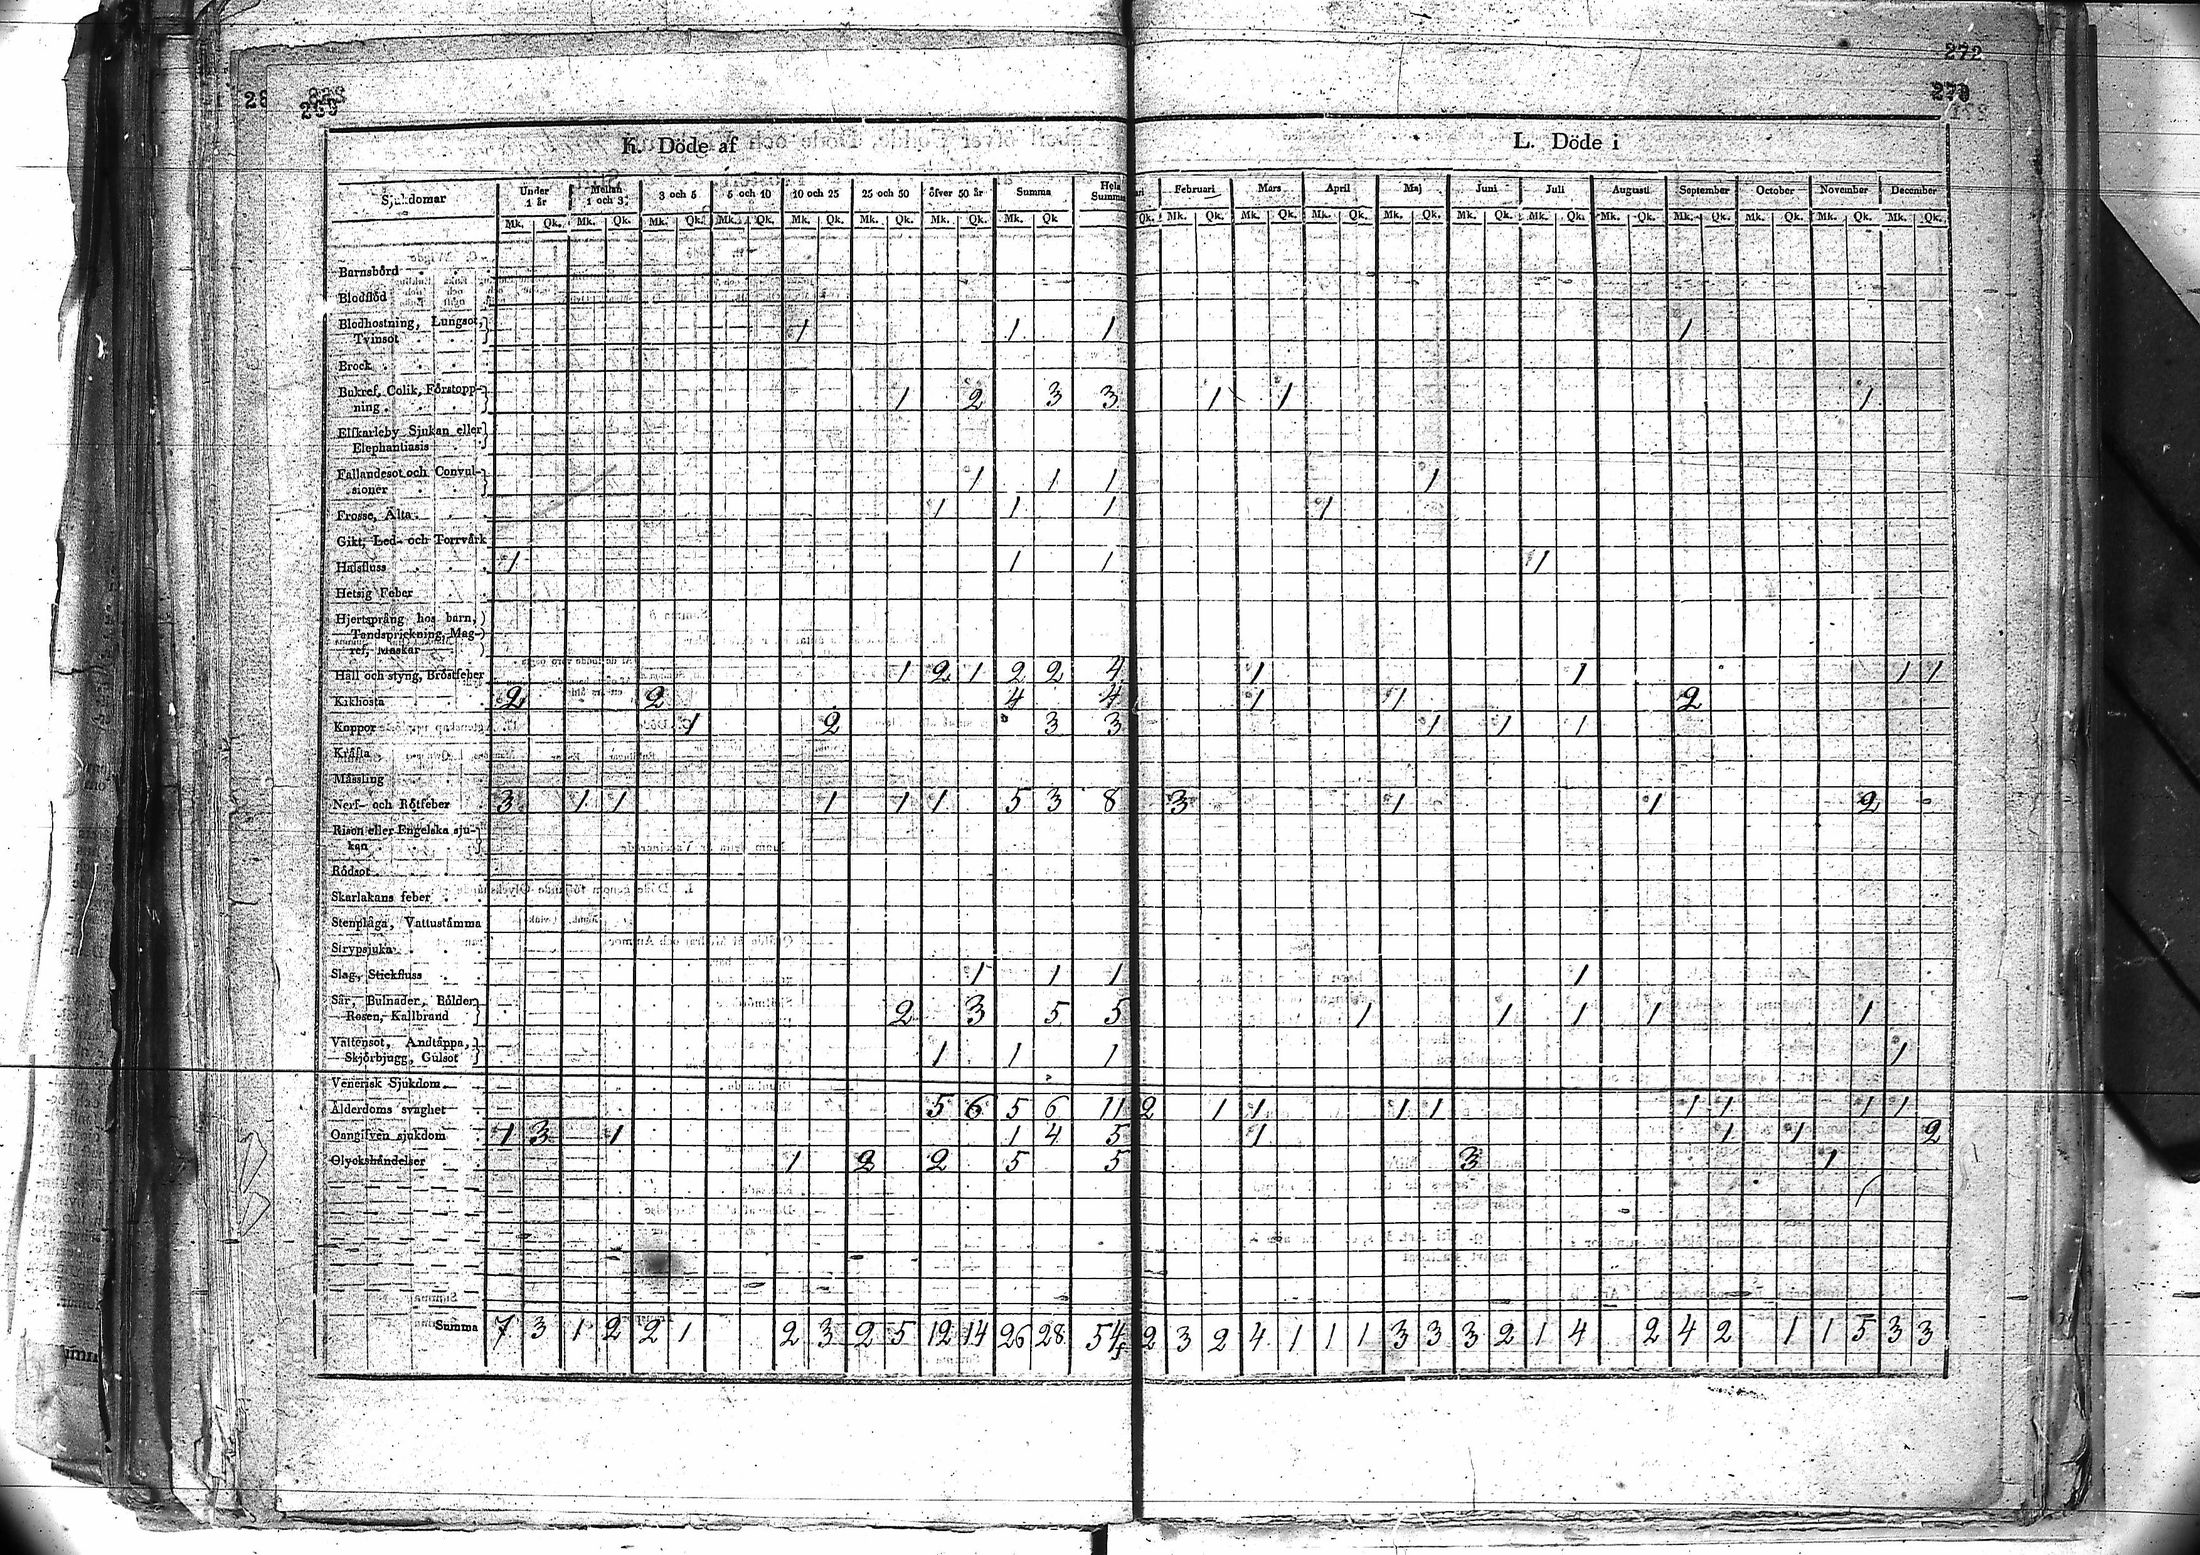 272
270
K. Döde af
L. Döde i
Sjukdomar Under 1 år Mellan 1 och 3 3 och 5 5 och 10 10 och 25 25 och 50 öfver 50 år Summa Hela Summa Februari Mars April Maj Juni Juli Augusti September October November December
Mk. Qk. Mk. Qk. Mk. Qk. Mk. Qk. Mk. Qk. Mk. Qk. Mk. Qk. Mk. Qk Qk. Mk. Qk. Mk. Qk. Mk. Qk. Mk. Qk. Mk. Qk. Mk. Qk. Mk. Qk. Mk. Qk. Mk. Qk. Mk. Qk. Mk. Qk.
Barnsbörd
Blodflöd
Blodhostning, Lungsot,
Tvinsot 1 1 1 1
Brock
Bukref, Colik, Förstopp-
ning 1 2 3 3 1 1 1
Elfkarleby Sjukan eller
Elephantiasis
Fallandesot och Convul-
sioner 1 1 1 1
Frosse, Älta 1 1 1 1
Gikt, Led- och Torrvärk
Halsfluss 1 1 1 1
Hetsig Feber
Hjertsprång hos barn,
Tandsprickning, Mag-
ref, Maskar
Håll och styng, Bröstfeber 1 2 1 2 2 4 1 1 1 1
Kikhosta 2 2 4 4 1 1 2
Koppor 1 2 3 3 1 1 1
Kräfta
Mässling
Nerf- och Rötfeber 3 1 1 1 1 1 5 3 8 3 1 1 2
Rison eller Engelska sju-
kan
Rödsot
Skarlakans feber
Stenplåga, Vattustämma
Strypsjuka
Slag, Stickfluss 1 1 1 1
Sår, Bulnader, Bölder
Rosen, Kallbrand 2 3 5 5 1 1 1 1 1
Vattensot, Andtäppa,
Skjörbjugg, Gulsot 1 1 1 1
Venerisk Sjukdom
Ålderdoms svaghet 5 6 5 6 11 2 1 1 1 1 1 1 1 1
Oangifven sjukdom 1 3 1 1 4 5 1 1 1 2
Olyckshändelser 1 2 2 5 5 3 1
Summa 7 3 1 2 2 1 2 3 2 5 12 14 26 28 54 2 3 2 4 1 1 1 3 3 3 2 1 4 2 4 2 1 1 5 3 3